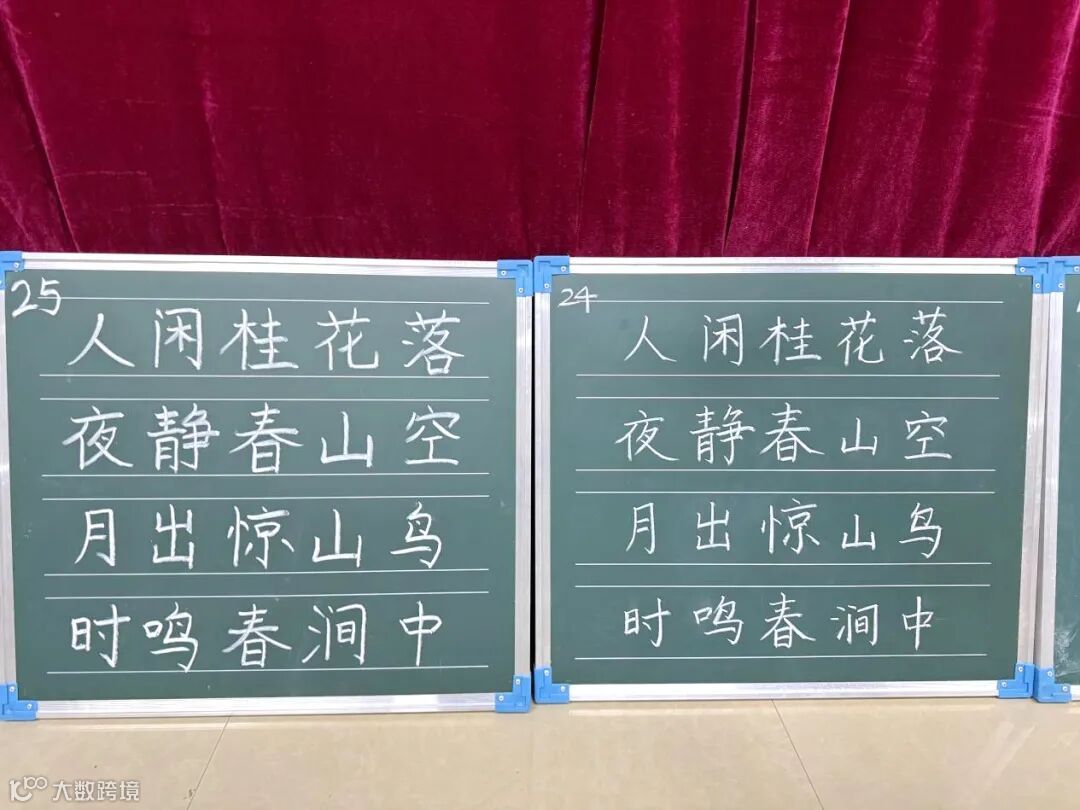 25
人闲桂花落
夜静春山空
月出惊山鸟
时鸣春涧中
24
人闲桂花落
夜静春山空
月出惊山鸟
时鸣春涧中
大数跨境